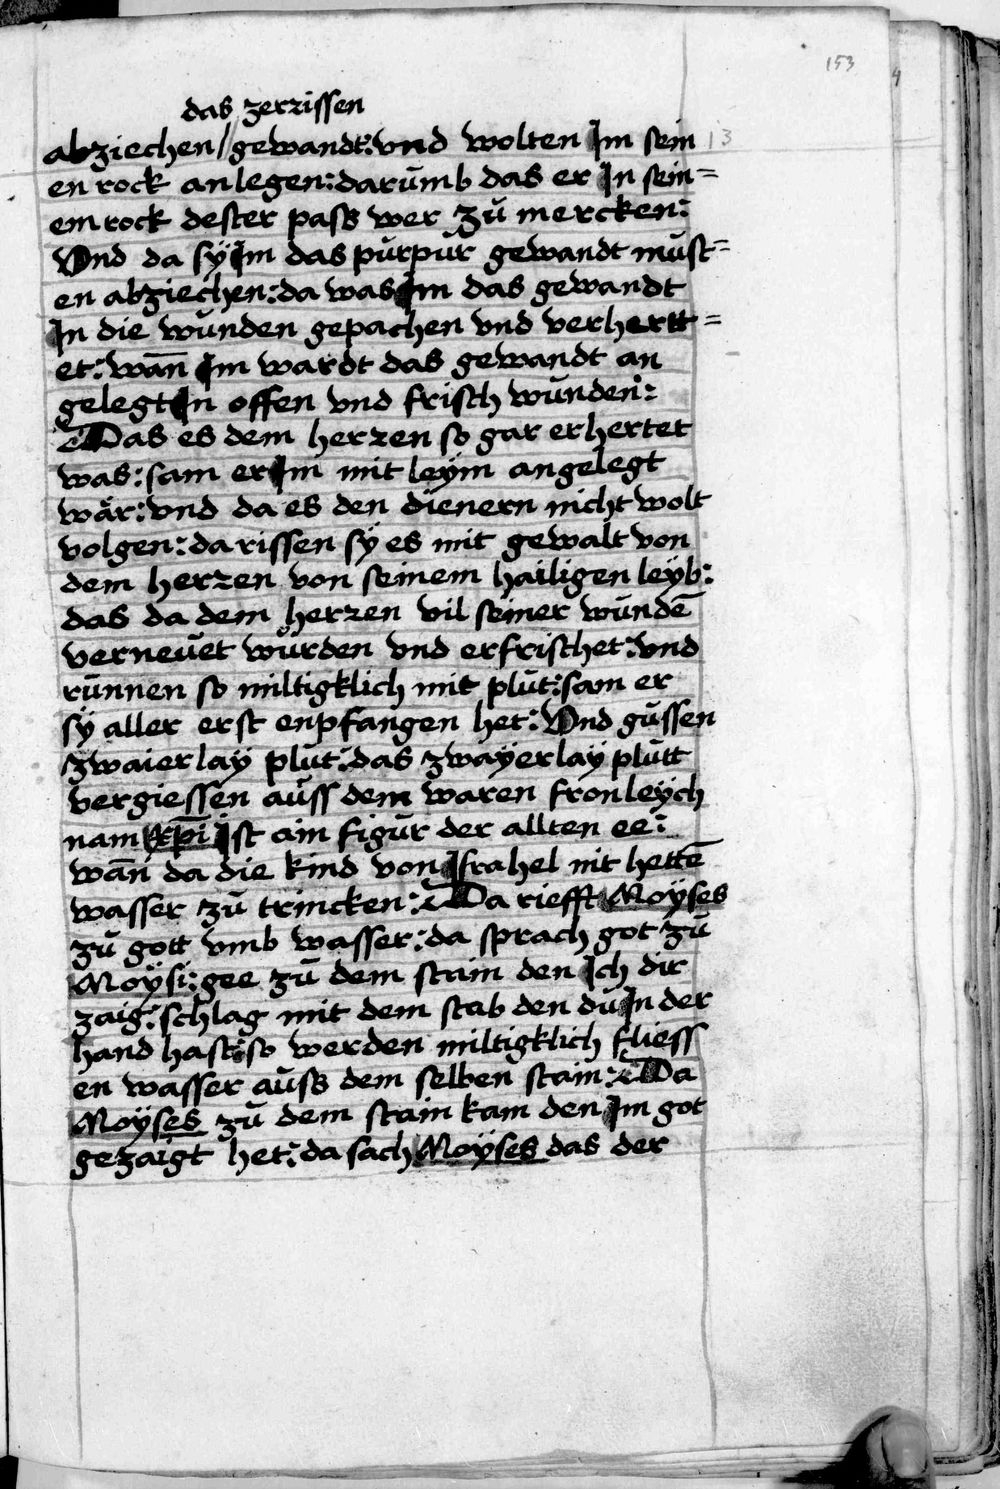 153
4
das zerrissen
abziechen / gewandt: vnd wolten Im sein 13
en rock anlegen: darumb das er In sein=
em rock dester pass wer zu mercken:
Vnd da sÿ Im das purpur gewandt must=
en abziechen: da was Im das gewandt
In die wunden gepachen vnd verhertt=
et: wañ Im wardt das gewandt an
gelegt In offen vnd frisch wunden:
Das es dem herzen so gar erhertet
was: sam er Im mit leÿm angelegt
wär: vnd da es den dienern nicht wolt
volgen: da rissen sÿ es mit gewalt von
dem herzen von seinem hailigen leÿb:
das da dem herzen vil seiner wundē
verneuet wurden vnd erfrischet: vnd
runnen so miltigklich mit plut: sam er
sÿ aller erst enpfangen het: Vnd gussen
zwaierlaÿ plut: das zwaÿerlaÿ plutt
vergiessen auss dem waren fronleÿch
nam xp̄i Ist ain figur der allten ee:
wañ da die kind von Israhel nit hettē
wasser zu trincken: Da riefft Moÿses
zu gott vmb wasser: da sprach got zu
Moÿsi: gee zu dem stain den Ich dir
zaig: schlag mit dem stab den du In der
hand hast: so werden miltigklich fliess
en wasser auss dem selben stain: Da
Moÿses zu dem stain kam den Im got
gezaigt het: da sach Moÿses das der